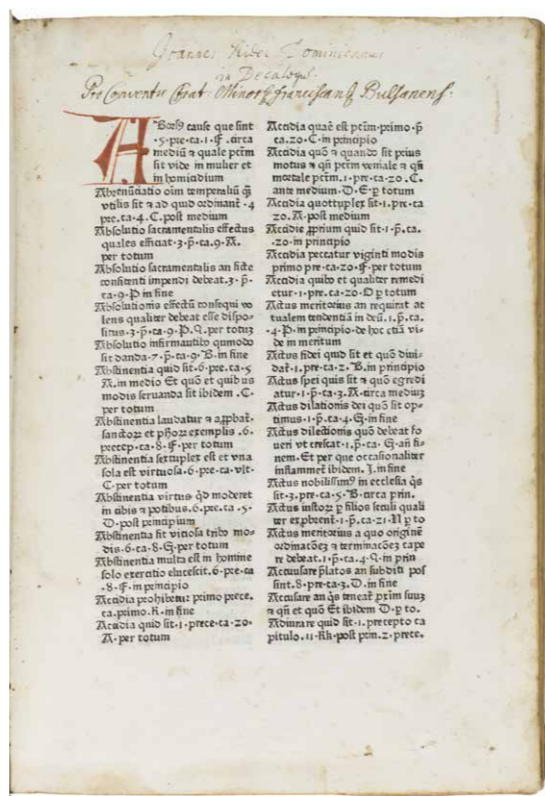 Joannes Nider Dominicanus
in Decalogū.
Pro Conventu Frat. Minorū Franciscanorū Bulsanens.
ABorsꝰ cause que sint
·5·pre·ca·1·F·circa
mediū ⁊ quale pctm̄
sit vide in mulier et
in homicidium
Abrenūciatio oīm temporaliū q̄
vtilis sit ⁊ ad quid ordinant̉·4
pre·ca·4·C·post medium
Absolutio sacramentalis effectus
quales efficiat·3·p̄·ca·9·A·
per totum
Absolutio sacramentalis an ficte
confitenti impendi debeat·3·p̄·
ca·9·P·in fine
Absolutionis effectū consequi vo
lens qualiter debeat esse dispo⸗
situs·3·p̄·ca·9·P·Q·per totuꝫ
Absolutio infirmantibꝰ qumodo
sit danda·7·p̄·ca·9·B·in fine
Abstinentia quid sit·6·pre·ca·5
A·in medio Et quō et quibus
modis seruanda sit ibidem·C·
per totum
Abstinentia laudatur ⁊ ꝓbat̉
sanctoꝝ et ph̄oꝝ exemplis·6·
precep·ca·8·F·per totum
Abstinentia sextuplex est et vna
sola est virtuosa·6·pre·ca·vlt·
C·per totum
Abstinentia virtus qd̄ moderet
in cibis ⁊ potibus·6·pre·ca·5·
D·post principium
Abstinentia fit viciosa tribꝰ mo⸗
dis·6·ca·8·G·per totum
Abstinentia multa est in homine
solo exercitio elucescit·6·pre·ca
·8·F·in principio
Accidia prohibetur primo prece·
ca·primo·K·in fine
Accidia quid sit·1·prece·ca·20·
A·per totum
Accidia quare est pctm̄·primo·p̄
ca·20·C·in principio
Accidia quō ⁊ quando sit prius
motus ⁊ qn̄ pctm̄ veniale ⁊ qn̄
mortale pctm̄·1·pre·ca·20·C·
ante medium·D·E·ꝑ totum
Accidia quottuplex sit·1·pre·ca
20·A·post medium
Accidie ꝓprium quid sit·1·p̄·ca·
20·in principio
Accidia peccatur viginti modis
primo pre·ca·20·F·per totum
Accidia quibꝰ et qualiter remedi
etur·1·pre·ca·20·O·ꝑ totum
Actus meritorius an requirat ac
tualem tendentiā in deū·1·p̄·ca·
·4·P·in principio·de hoc etiā vi⸗
de in meritum
Actus fidei quid sit et quō diui⸗
dat̉·1·pre·ca·2·B·in principio
Actus spei quis sit ⁊ quō egredi
atur·1·p̄·ca·3·A·circa mediuꝫ
Actus dilationis dei quō sit op⸗
timus·1·p̄·ca·4·G·in fine
Actus dilectionis quō debeat fo
ueri vt crescat·1·p̄·ca·G·añ fi⸗
nem·Et per que occasionaliter
inflammet̉ ibidem·I·in fine
Actus nobilissimꝰ in ecclesia qͥs
sit·3·pre·ca·5·B·circa prin·
Actus iustoꝝ ꝑ filios seculi quali
ter exprobrent̉·1·p̄·ca·21·N·ꝑ to
Actus meritorius a quo origineꝫ
ordinatōeꝫ ⁊ terminatōeꝫ cape
re debeat·1·p̄·ca·4·Q·in prin
Accusare p̄latos an subditi pos
sint·8·pre·ca·3·D·in fine
Accusare an qͥs teneat̉ p̄xim̄ suuꝫ
⁊ qn̄ et quō Et ibidem·D·ꝑ to·
Adiurare quid sit·1·precepto ca
pitulo·11·KK·post prin·2·prece·